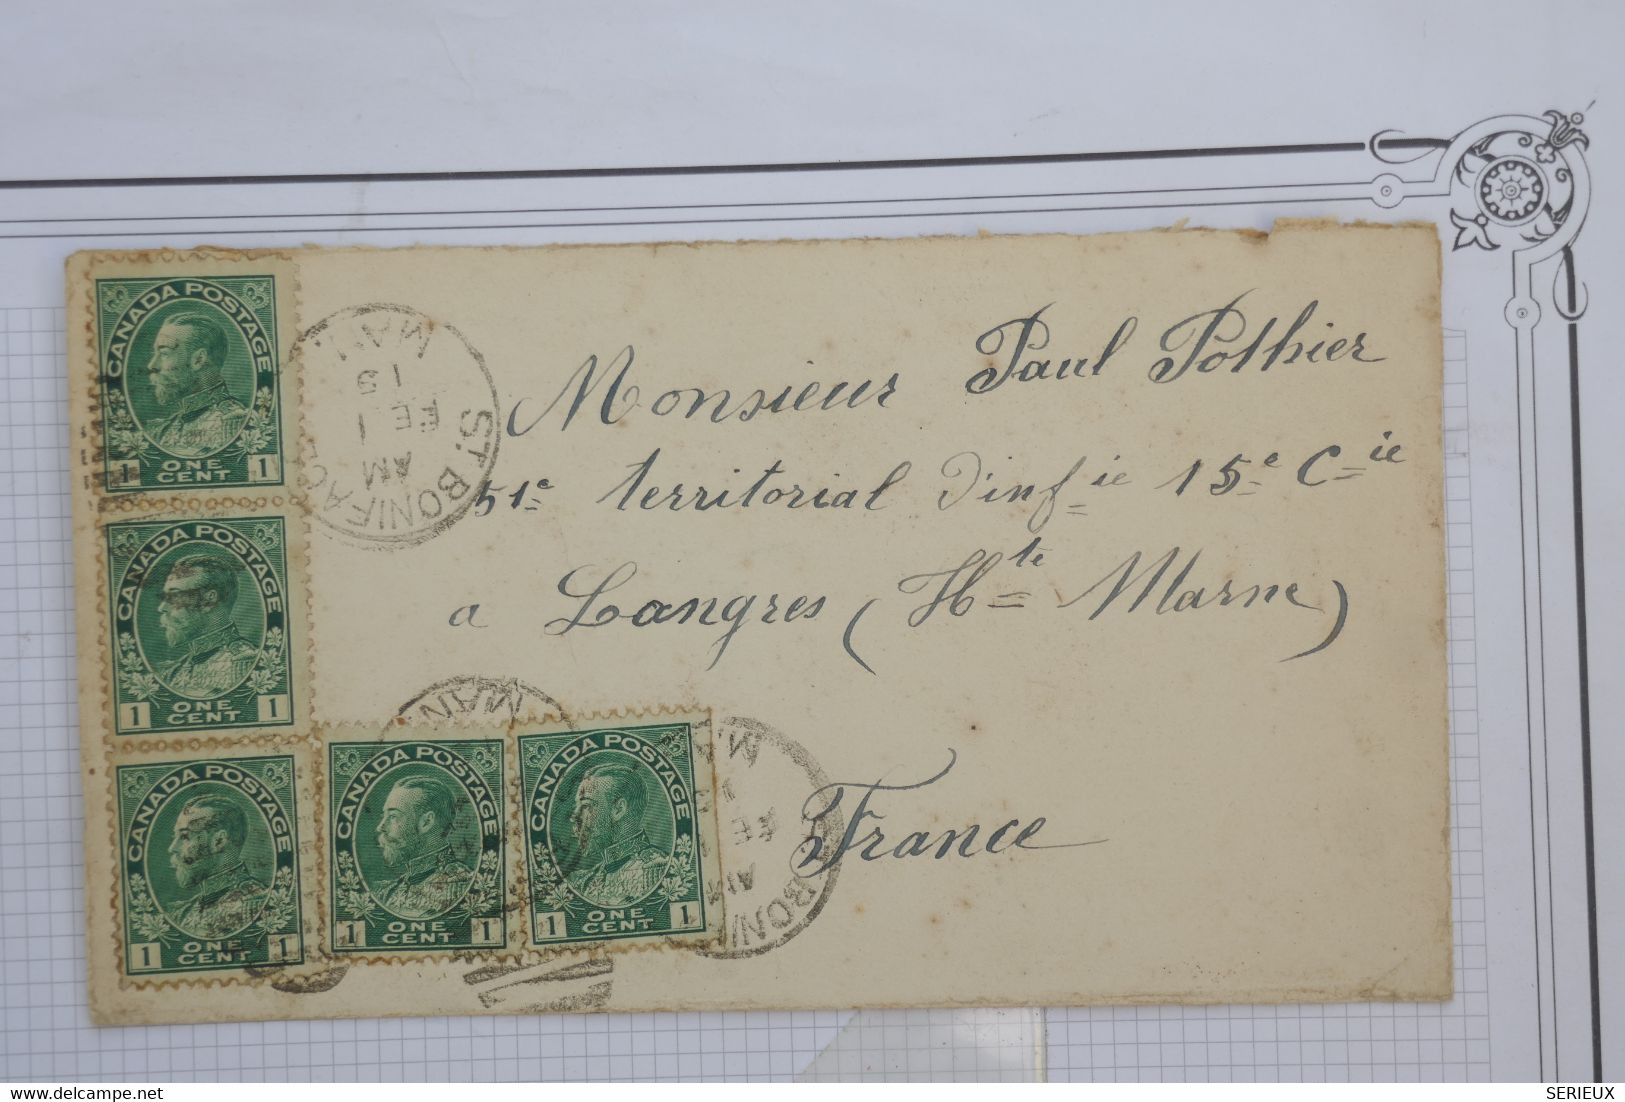 CANADA POSTAGE
1 ONE CENT 1
CANADA POSTAGE
1 ONE CENT 1
CANADA POSTAGE
1 ONE CENT 1
CANADA POSTAGE
1 ONE CENT 1
CANADA POSTAGE
1 ONE CENT 1
ST. BONIFACE
AM
FE 1
15
MAN.
Monsieur Paul Pothier
51e territorial d'infie 15e Cie
a Langres (Hte Marne)
France
MAN
BONI
AM
FE
delcampe.net
SERIEUX